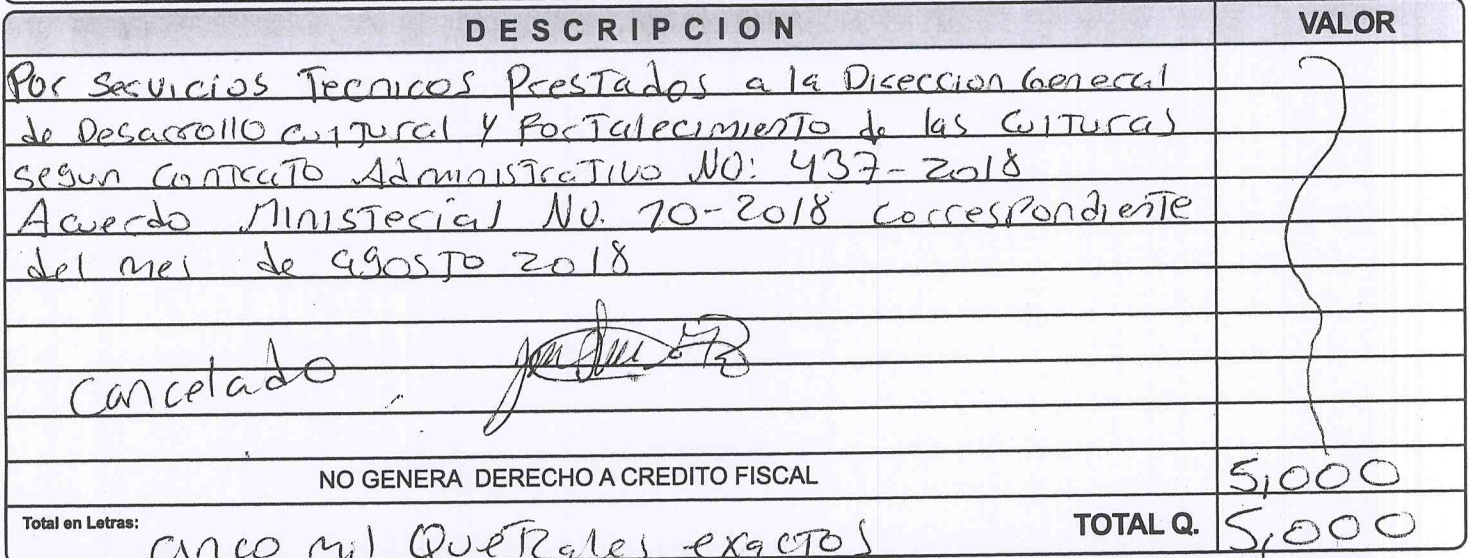 DESCRIPCION VALOR
Por Servicios Tecnicos Prestados a la Direccion General
de Desarrollo cultural y Fortalecimiento de las Culturas
segun Contrato Administrativo NO: 437-2018
Acuerdo Ministerial No. 10-2018 correspondiente
del mes de agosto 2018
Cancelado
NO GENERA DERECHO A CREDITO FISCAL 5,000
Total en Letras: cinco mil Quetzales exactos TOTAL Q. 5,000